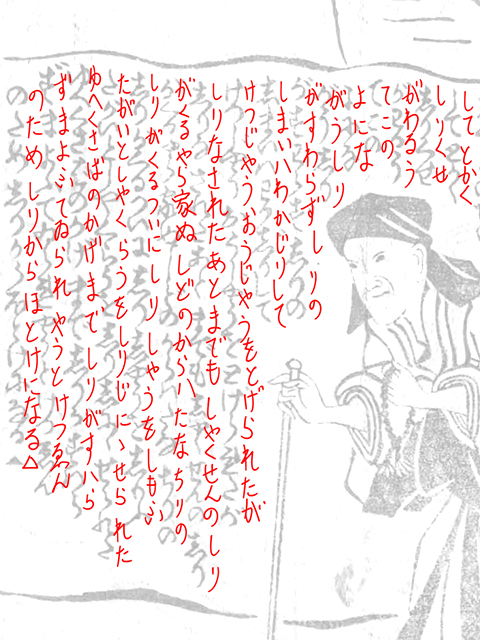 してとかく
しりくせ
がわるう
てこの
よにな
がうしり
がすわらずしりの
しまい八わかじりして
けつじやうおうじやうをとげられたが
しりなされたあとまでもしやくせんのしり
がくるやら家ぬしどのから八たなちりの
しりがくるついにしりしやうをしもふ
たがいとしやくらうをしりじにゝせられた
ゆへくさばのかげまでしりがす八ら
ずまよふてゐられやうとけつゑん
のためしりからほとけになる△